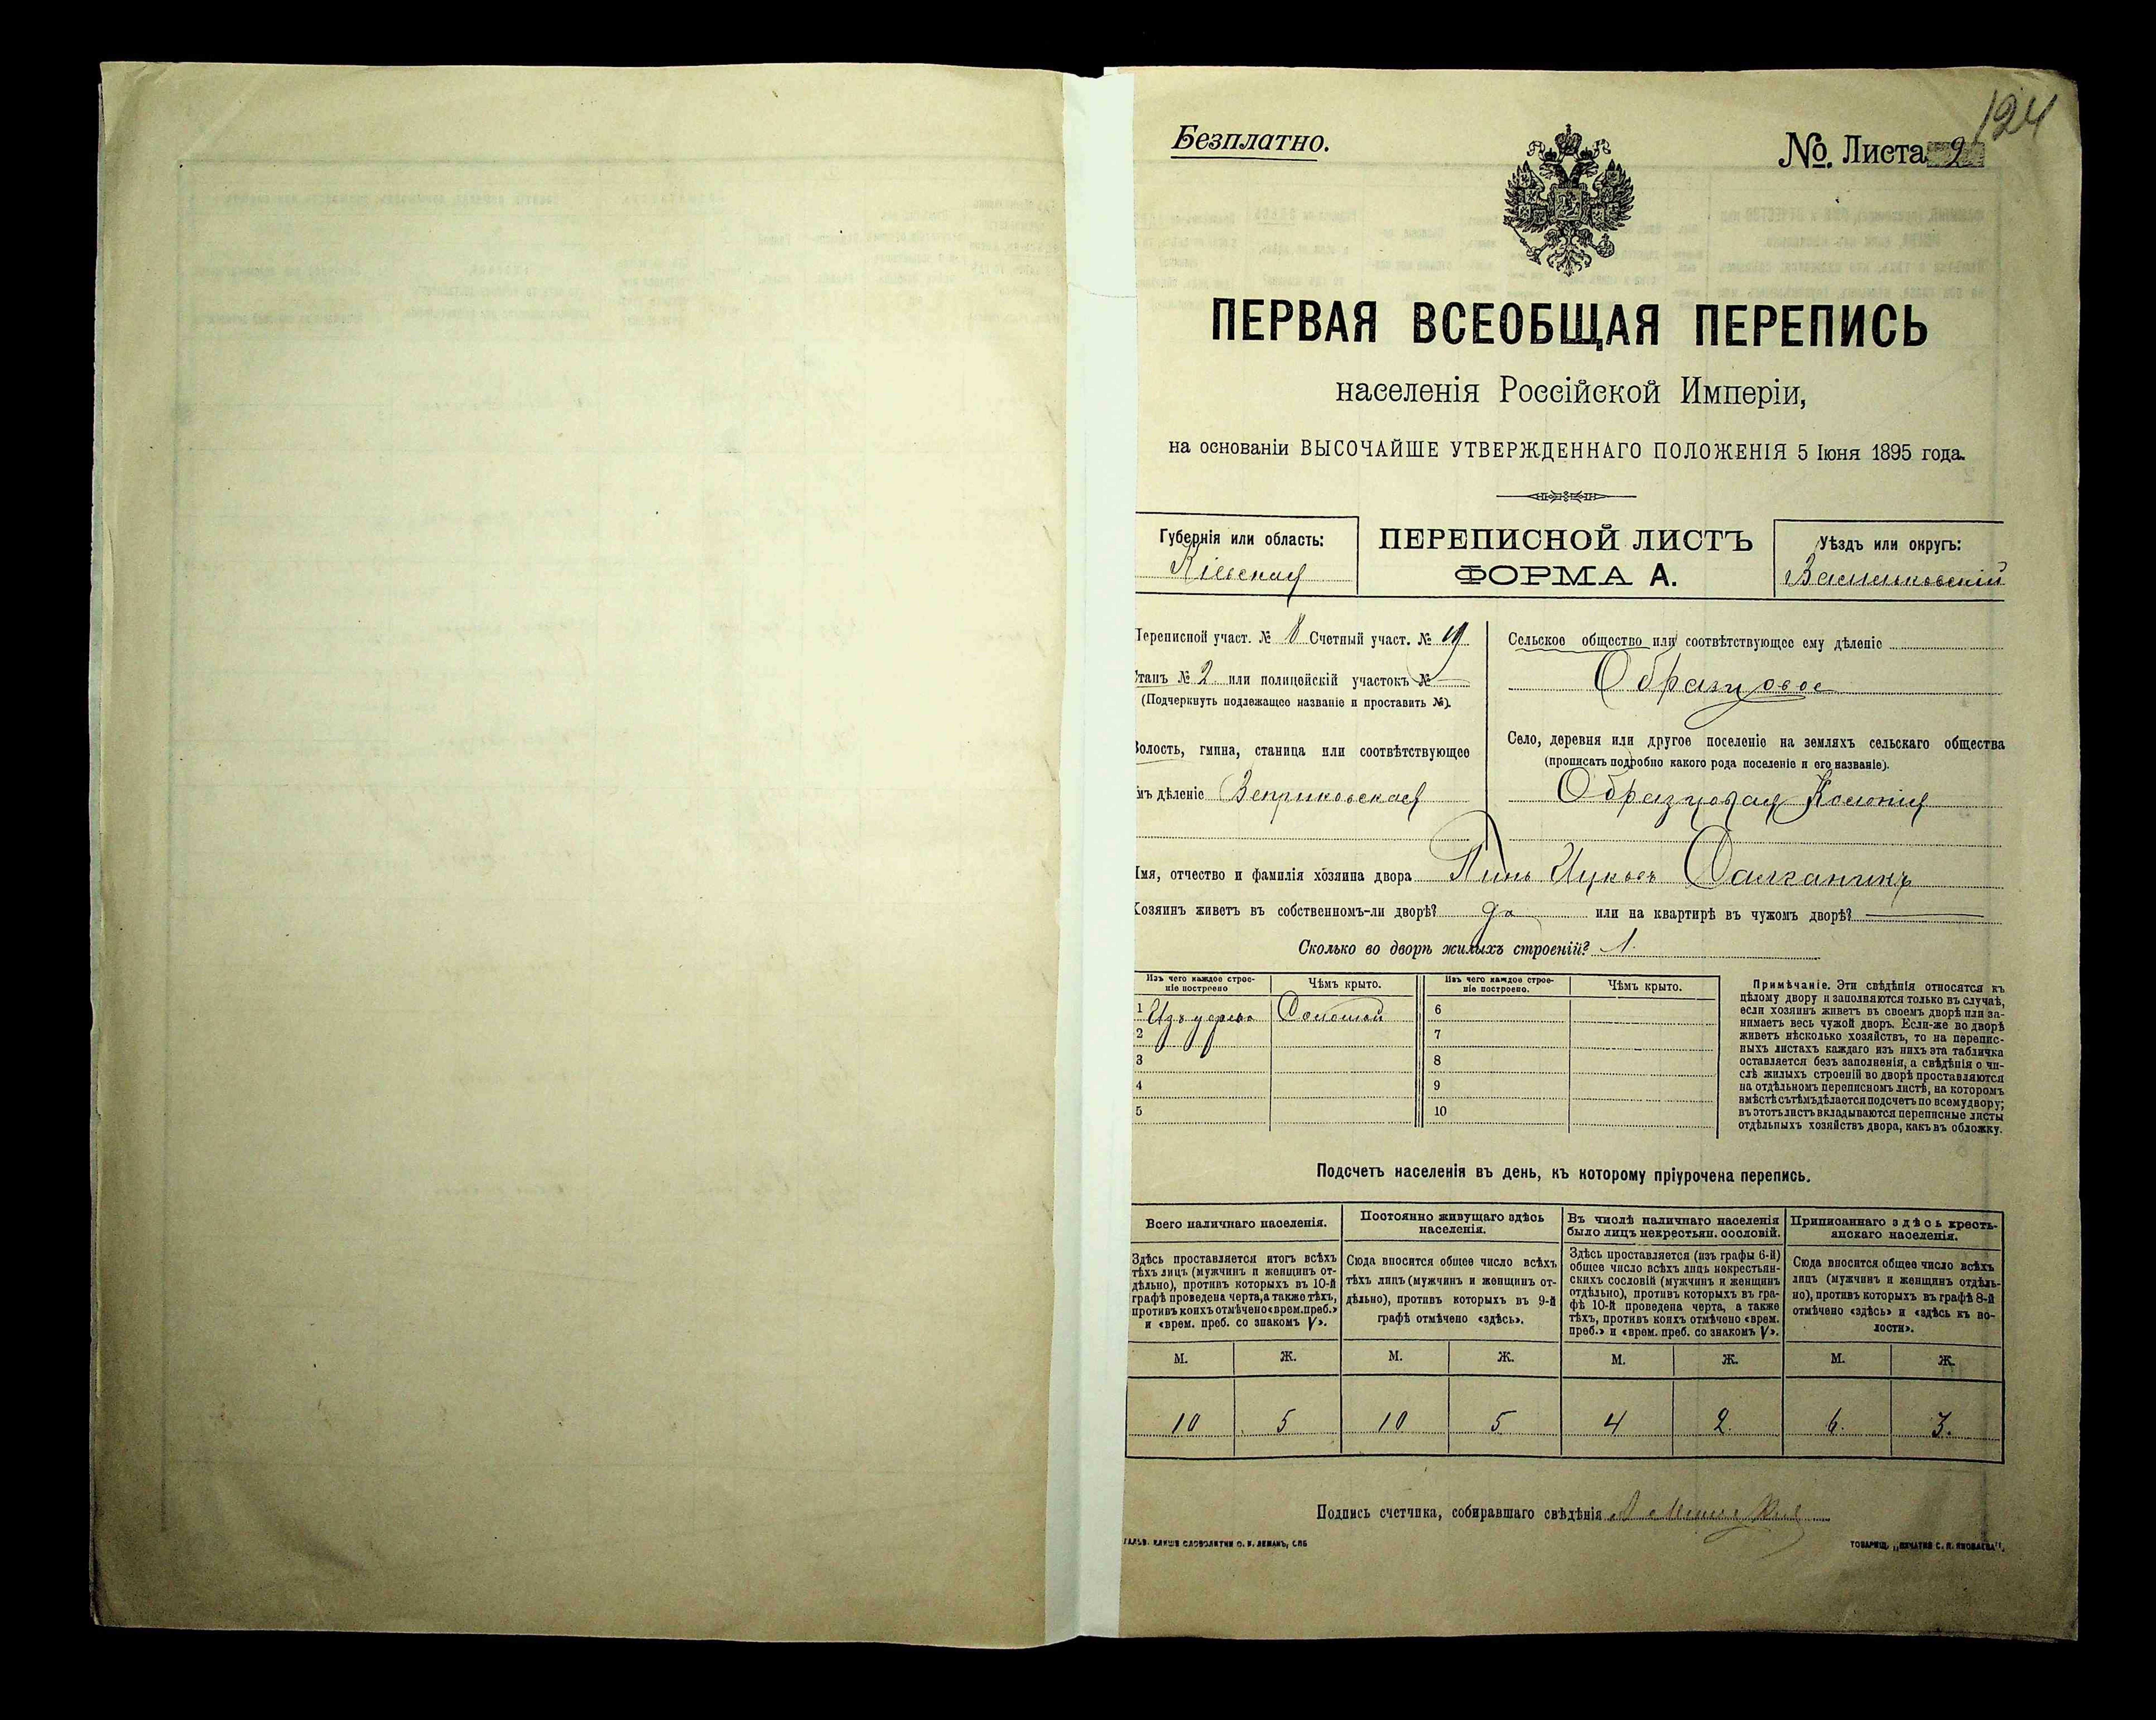 124
Безплатно.
№. Листа 9
ПЕРВАЯ ВСЕОБЩАЯ ПЕРЕПИСЬ
населенія Россійской Имперіи,
на основаніи ВЫСОЧАЙШЕ УТВЕРЖДЕННАГО ПОЛОЖЕНІЯ 5 Іюня 1895 года.
Губернія или область:
Кіевская
ПЕРЕПИСНОЙ ЛИСТЪ
ФОРМА А.
Уѣздъ или округъ:
Васильковскій
Переписной участ. № 8 Счетный участ. №
Станъ № 2 или полицейскій участокъ №
(Подчеркнуть подлежащее названіе и проставить №).
Волость, гмина, станица или соотвѣтствующее
имъ дѣленіе Веприковская
Сельское общество или соотвѣтствующее ему дѣленіе
Образцовое
Село, деревня или другое поселеніе на земляхъ сельскаго общества
(прописать подробно какого рода поселеніе и его названіе).
Образцовая Колонія
Имя, отчество и фамилія хозяина двора
Хозяинъ живетъ въ собственномъ-ли дворѣ? да или на квартирѣ въ чужомъ дворѣ?
Сколько во дворѣ жилыхъ строеній? 1.
Изъ чего каждое строе-
ніе построено
Чѣмъ крыто.
Изъ чего каждое строе-
ніе построено.
Чѣмъ крыто.
1 Изъ дерева Соломой 6
2 7
3 8
4 9
5 10
Примѣчаніе. Эти свѣдѣнія относятся къ
цѣлому двору и заполняются только въ случаѣ,
если хозяинъ живетъ въ своемъ дворѣ или за-
нимаетъ весь чужой дворъ. Если-же во дворѣ
живетъ нѣсколько хозяйствъ, то на перепис-
ныхъ листахъ каждаго изъ нихъ эта табличка
оставляется безъ заполненія, а свѣдѣнія о чи-
слѣ жилыхъ строеній во дворѣ проставляются
на отдѣльномъ переписномъ листѣ, на которомъ
вмѣстѣ съ тѣмъ дѣлается подсчетъ по всему двору;
въ этотъ листъ вкладываются переписные листы
отдѣльныхъ хозяйствъ двора, какъ въ обложку.
Подсчетъ населенія въ день, къ которому пріурочена перепись.
Всего наличнаго населенія.
Здѣсь проставляется итогъ всѣхъ
тѣхъ лицъ (мужчинъ и женщинъ от-
дѣльно), противъ которыхъ въ 10-й
графѣ проведена черта, а также тѣхъ,
противъ коихъ отмѣчено «врем. преб.»
и «врем. преб. со знакомъ V».
Постоянно живущаго здѣсь
населенія.
Сюда вносится общее число всѣхъ
тѣхъ лицъ (мужчинъ и женщинъ от-
дѣльно), противъ которыхъ въ 9-й
графѣ отмѣчено «здѣсь».
Въ числѣ наличнаго населенія
было лицъ некрестьян. сословій.
Здѣсь проставляется (изъ графы 6-й)
общее число всѣхъ лицъ некрестьян-
скихъ сословій (мужчинъ и женщинъ
отдѣльно), противъ которыхъ въ гра-
фѣ 10-й проведена черта, а также
тѣхъ, противъ коихъ отмѣчено «врем.
преб.» и «врем. преб. со знакомъ V».
Приписаннаго здѣсь кресть-
янскаго населенія.
Сюда вносится общее число всѣхъ
лицъ (мужчинъ и женщинъ отдѣль-
но), противъ которыхъ въ графѣ 8-й
отмѣчено «здѣсь» и «здѣсь къ во-
лости».
М. Ж. М. Ж. М. Ж. М. Ж.
10 5 10 5 4 2. 6. 3.
Подпись счетчика, собиравшаго свѣдѣнія
ГАЛЬВ. КЛИШЕ СЛОВОЛИТНИ О. И. ЛЕМАНЪ, СПБ
ТОВАРИЩ. „ПЕЧАТНЯ С. П. ЯКОВЛЕВА".